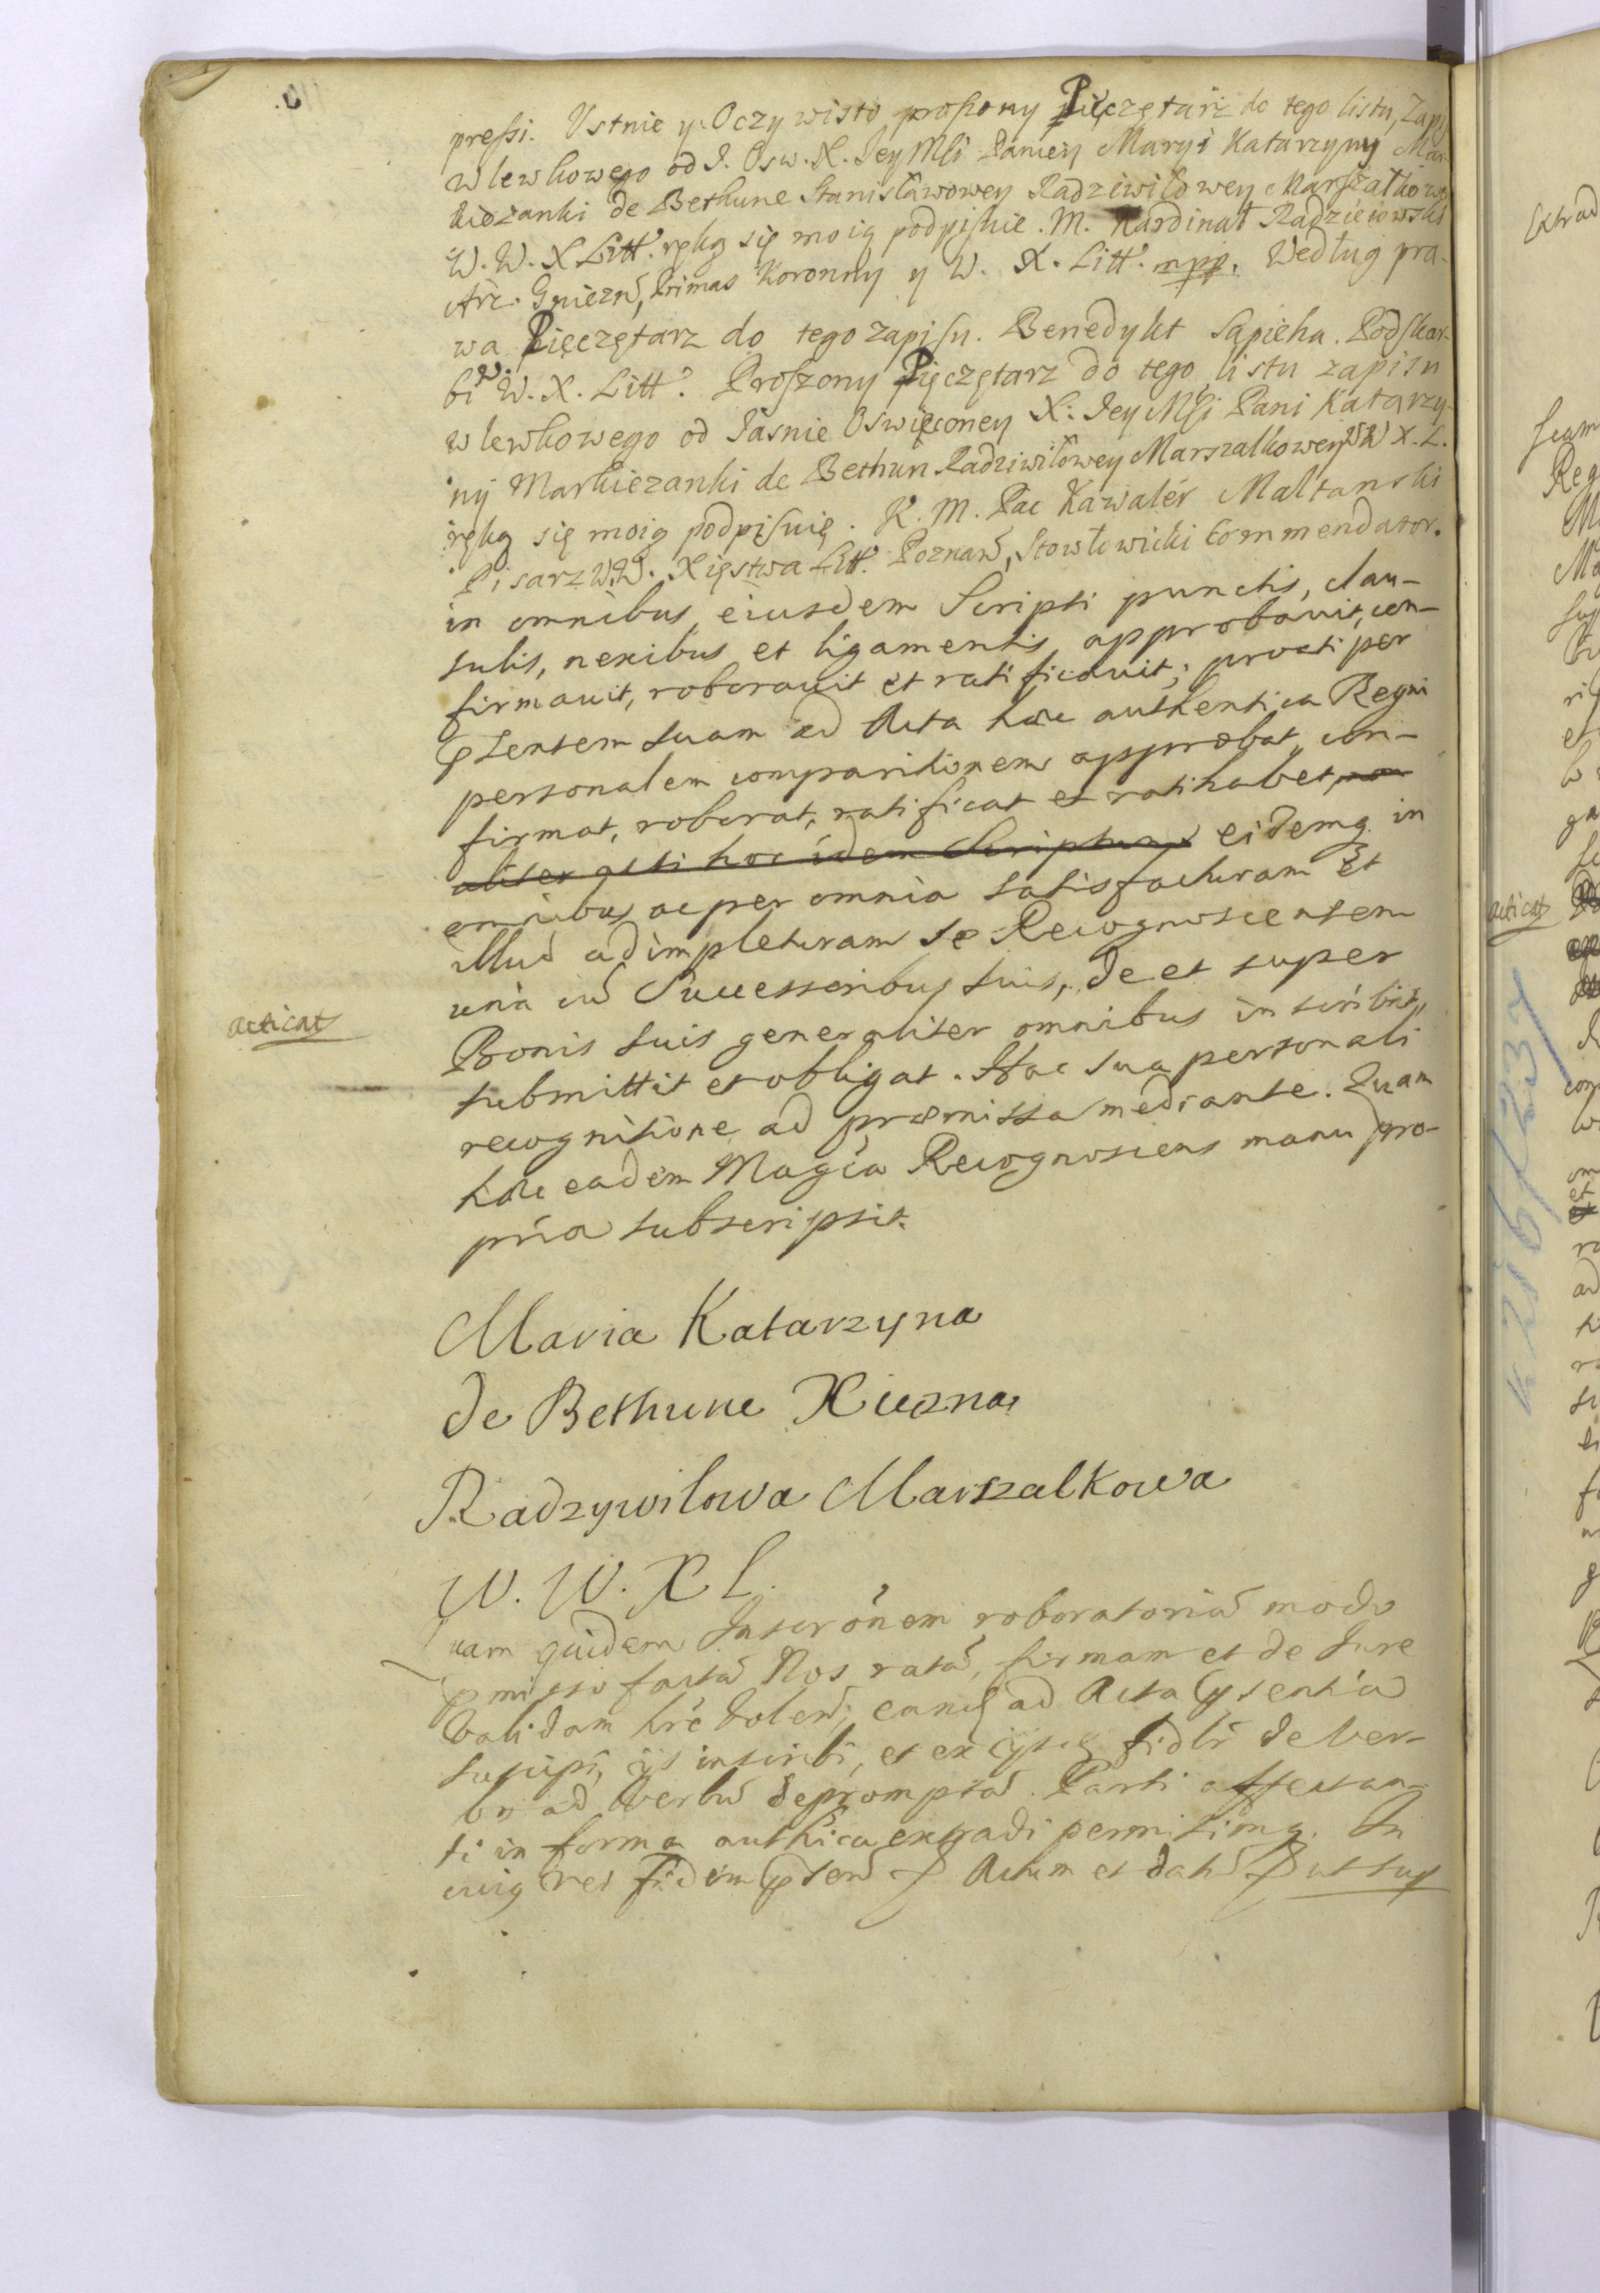 pressi. Ustnie y Oczywisto proszony Pięczętarz do tego listu, Zapi
wlewkowego od J. Osw. X. Jey Mści Paniey Maryi Katarzyny Mar-
kiezanki de Bethune Stanisławowey Radziwiłowey Marszałkowey
W. W. X Litt. ręką się moią podpisuie. M. Kardinał Radzieiowski
Arc. Gniezń, Primas Koronny y W. X. Litt. mpp. Według pra-
wa Pięczętarz do tego zapisu. Benedykt Sapieha. Podskar-
bi W. W. X. Litt. Proszony Pięczętarz do tego listu zapisu
wlewkowego od Jasnie Oswięconey X: Jey Mści Pani Katarzy-
ny Markiezanki de Bethun Radziwiłowey Marszalkowey W W X. L.
ręką się moią podpisuię. K. M. Pac Kawaler Maltanski
Pisarz W. W. Xięstwa Litt. Poznań, Stowłowicki Commendator.
in omnibus eiusdem Scripti punctis, clau-
sulis, nexibus et ligamentis approbavit, con-
firmavit, roboravit et ratificavit; prout per
pzentem suam ad Acta haec authentica Regni
personalem comparitionem approbat con-
firmat, roborat, ratificat et ratihabet, non
aliter qsi hoc idem Scriptum eidemq in
omnibus ac per omnia satisfacturam Et
illud adimpleturam se Recognoscentem
unà cũ Successoribus suis, de et super
Bonis suis generaliter omnibus inscribit,
submittit et obligat. Hac sua personali
recognitione ad praemissa mediante. Quam
haec eadem Magca Recognoscens manu pro-
pria subscripsit.
acticat
Maria Katarzyna
de Bethune Xiezna
Radzywilowa Marszalkowa
W. W. X L.
Quam quidem Inscrõnem roboratoriã modo
pmisso factã Nos ratã, firmam et de Jure
validam hre volen; eand ad Acta psentia
suscipi, ijs inscribi, et ex ijsd fidlr de ver-
bo ad verbũ depromptã Parti affectan-
ti in forma authca extradi permisimq. In
cuiq rei fidem pzen Actum et datũ ut sup
Extrad
acticat